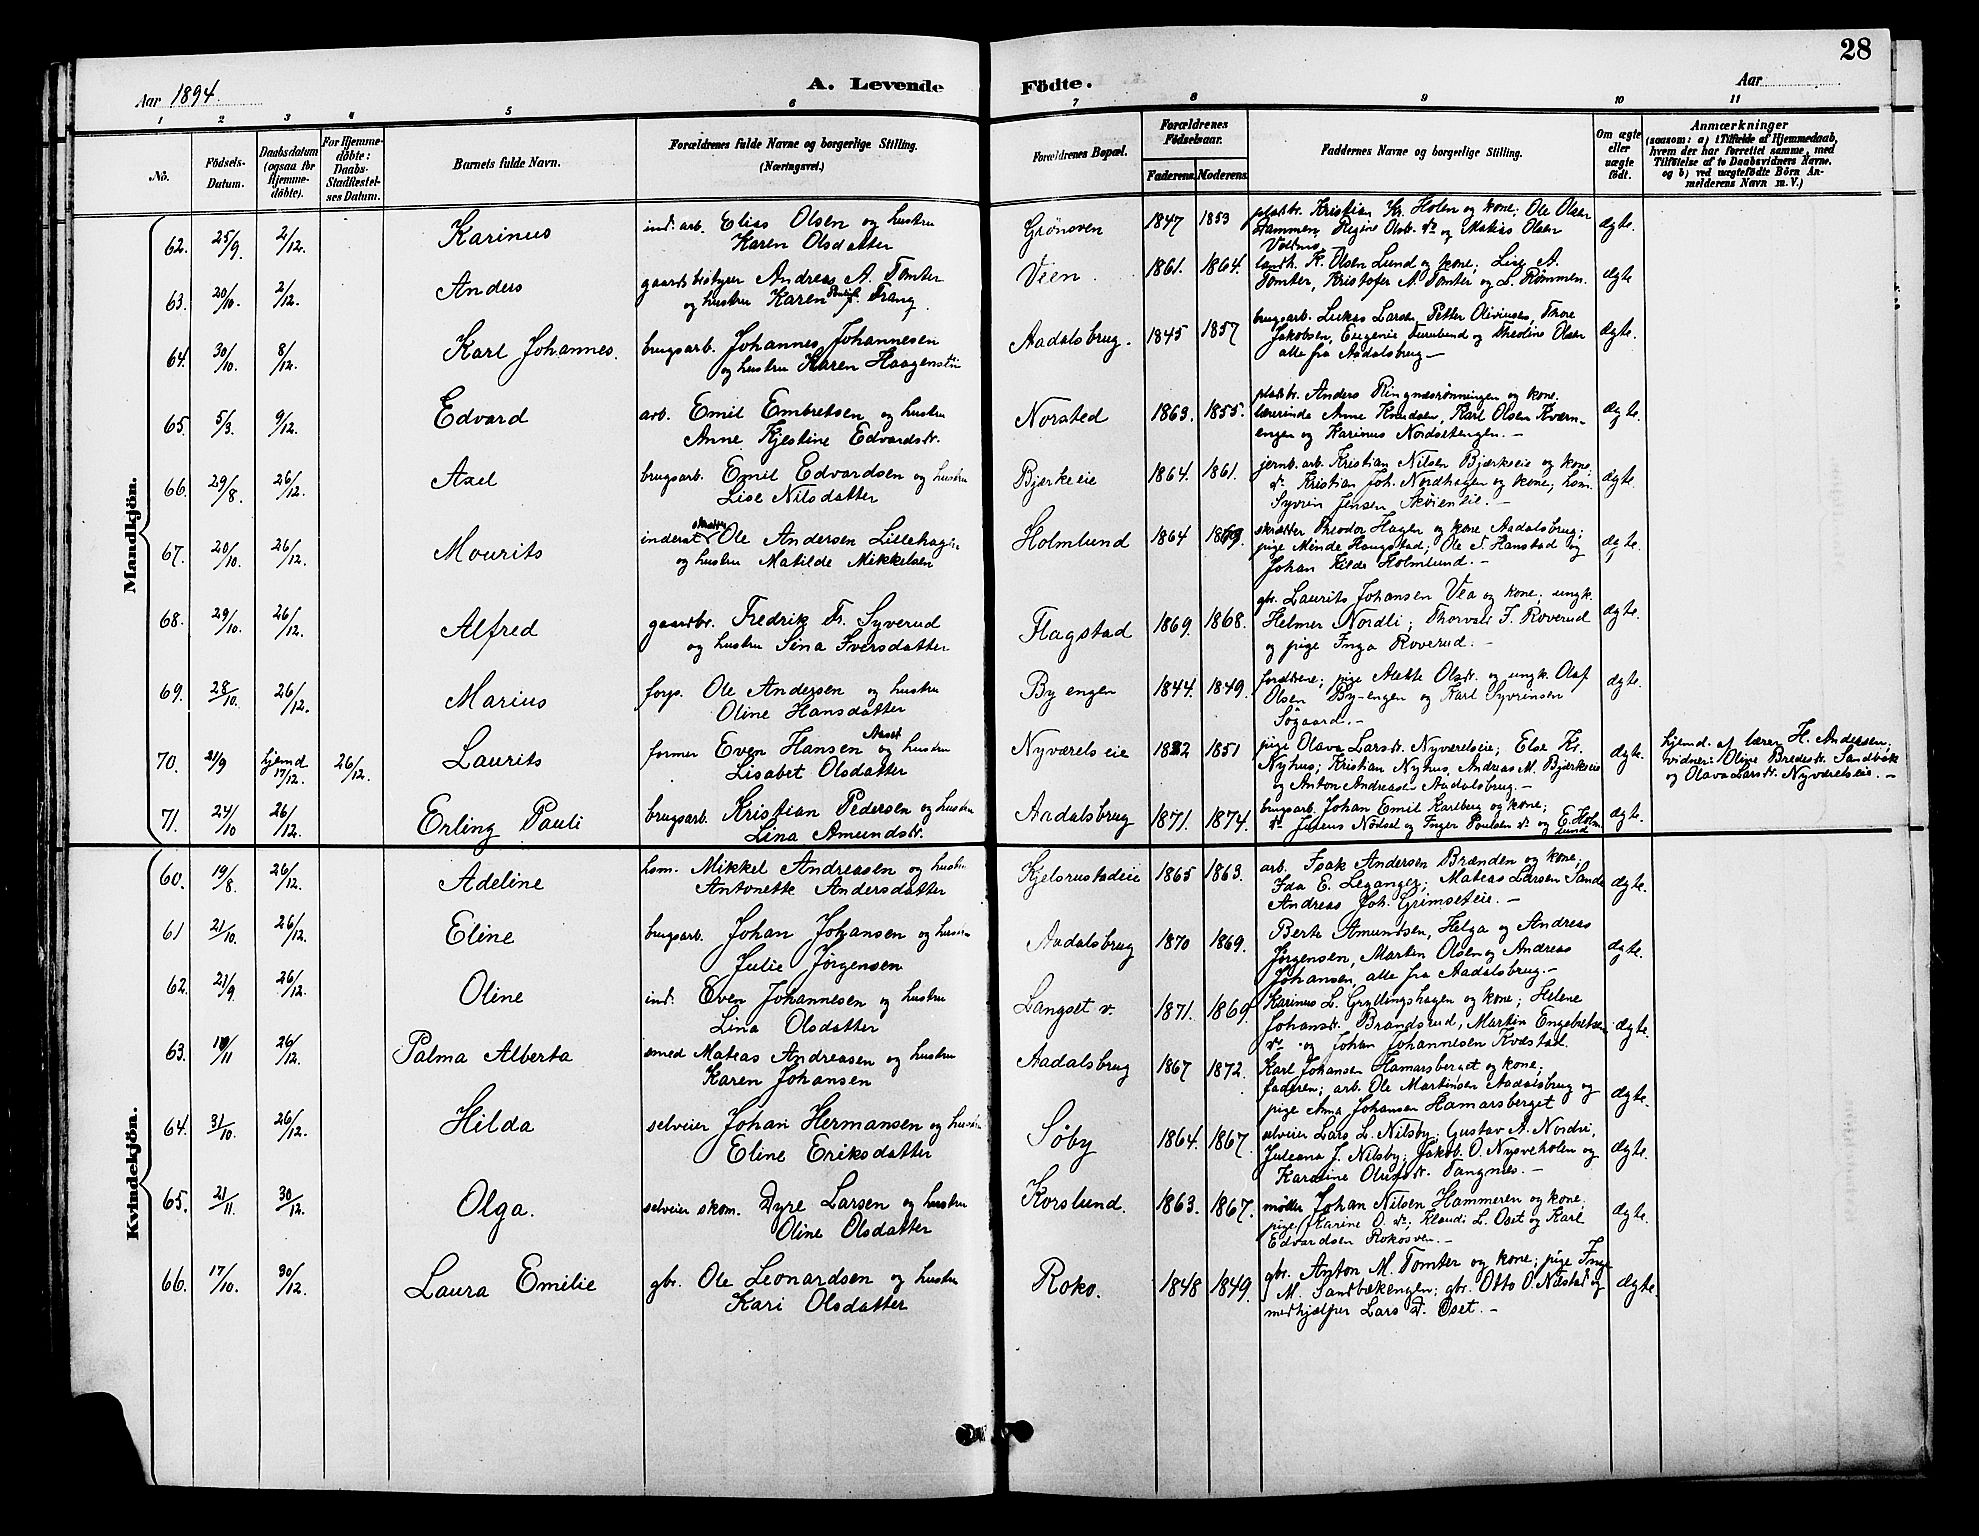 28
Aar 1894.
A. Levende Födte.
Aar
1 2 3 4 5 6 7 8 9 10 11
No.
Födsels-Datum.
Daabsdatum (ogsaa for Hjemmedöbte).
For Hjemmedöbte: Daabs-Stadfæstelses Datum.
Barnets fulde Navn.
Forældrenes fulde Navne og borgerlige Stilling. (Næringsvei.)
Forældrenes Bopæl.
Forældrenes Födselsaar.
Faderens. Moderens.
Faddernes Navne og borgerlige Stilling.
Om ægte eller uægte födt.
Anmærkninger
(saasom: a) i Tilfælde af Hjemmedaab, hvem der har forrettet samme, med Tilföielse af to Daabsvidners Navne. og b) ved uægtefödte Börn Anmelderens Navn m. V.)
Mandkjön.
62. 25/9 2/12. Karinus ind. arb. Elias Olsen og hustru Grönsven 1847 1853 pladsbr. Kristian Kr. Holen og kone; Ole Olsen ægte.
Karen Olsdatter Dammen, Regine Olsdr. do og Matias Olsen
63. 20/10. 2/12. Anders gaardsbestyrer Andreas A. Tomter Veen. 1861. 1864. landh. K. Olsen Lund og kone; Lise A. ægte
og hustru Karen Trang. Tomter, Kristofer A. Tomter og L. Rømmen.
64. 30/10. 8/12. Karl Johannes. brugsarb. Johannes Johannesen Aadalsbrug. 1845 1857 brugsarb. Lukas Larsen, Petter Oliviusen, Thore ægte.
og hustru Karen Haagenstr. Jakobsen, Eugenie Furulund og Theoline Olsen
alle fra Aadalsbrug —
65. 5/3. 9/12. Edvard arb. Emil Embretsen og hustru Norsted 1863. 1855. pladsbr. Anders Ringnæsrønningen og kone. ægte.
Anne Kjestine Edvardsdr. lærerinde Anne Knudsen, Karl Olsen Kværn-
engen og Karinus Nordsetengen. —
66. 29/8. 26/12. Axel brugsarb. Emil Edvardsen og hustru Bjerkeeie 1864. 1861. jernb. arb. Kristian Nilsen Bjærkeeie og kone. ægte.
Lise Nilsdatter do Kristian Joh. Nordhagen og kone; hsm.
Syvrin Jensen Skøieneie. —
67. 20/10. 26/12. Mourits inderst Ole Andersen Lillehagen Holmlund 1864 skrædder Theodor Hagen og kone Aadalsbrug; ægte.
og hustru Matilde Mikkelsen pige Minda Haugstad; Ole T. Hanstad og
Johan Kilde Holmlund. —
68. 29/10. 26/12. Alfred gaardbr. Fredrik Fr. Syverud Flagstad 1869. 1868. gbr. Laurits Johansen Vea og kone; ungk. ægte.
og hustru Sina Iversdatter Helmer Nordli; Thorvald I. Roverud
og pige Inga Roverud. —
69. 28/10. 26/12. Marius forp. Ole Andersen og hustru By engen 1844. 1849. forældrene; pige Alette Olsdr. og ungk. Olaf ægte.
Oline Hansdatter Olsen By-engen og Karl Syvrinsen
Søgaard. —
70. 21/9 hjemd 17/12. 26/12. Laurits former Even Hansen Aaset og hustru Nyværelseie 1851 pige Olava Larsdr. Nyværelseie; Else Kr. ægte. hjemd. af lærer H. Andersen;
Lisabet Olsdatter Nyhus; Kristian Nyhus, Andreas M. Bjerkeeie vidner: Oline Bredesdr. Sandbæk
og Anton Andreasen Aadalsbrug. — og Olava Larsdr. Nyværelseie. —
71. 24/10 26/12. Erling Pauli brugsarb. Kristian Pedersen og hustru Aadalsbrug 1871. 1874. brugsarb. Johan Emil Karlberg og kone; ægte.
Lina Amundsdr. do Julius Nødset og Inger Poulsen do og E. Holmlund
Kvindekjön.
60. 19/8. 26/12. Adeline hsm. Mikkel Andreasen og hustru Kjelsrustadeie 1865 1863. arb. Isak Andersen Brænden og kone; ægte.
Antonette Andersdatter Ida E. Leganger; Mateas Larsen Sande
Andreas Joh. Grimseteie. —
61 21/10. 26/12. Eline brugsarb. Johan Johansen og hustru Aadalsbrug 1870 1869. Berte Amundsen, Helga og Andreas ægte.
Julie Jørgensen Jørgensen, Martin Olsen og Andreas
Johansen, alle fra Aadalsbrug. —
62. 21/9. 26/12. Oline ind. Even Johannesen og hustru Langset v. 1871. 1869. Karinus L. Gryllingshagen og kone; Helene ægte.
Lina Olsdatter Johansdr. Brandsrud, Martin Engebretsen
do og Johan Johannesen Kvæstad.
63. 26/12. Palma Alberta smed Mateas Andreasen og hustru Aadalsbrug 1867 1872. Karl Johansen Hamarsberget og kone; ægte.
Karen Johansen faderen; arb. Ole Martinsen Aadalsbrug og
pige Anna Johansen Hamarsberget
64. 31/10. 26/12. Hilda selveier Johan Hermansen og hustru Søby 1864. 1867. selveier Lars L. Nilsby; Gustav A. Nordvi, ægte.
Eline Eriksdatter Juleana J. Nilsby; Jakob O. Nysveholen og
Karoline Olufsdr. Tangnes. —
65. 21/11. 30/12. Olga. selveier skom. Dyre Larsen og hustru Korslund. 1863. 1867. møller Johan Nilsen Hammeren og kone. ægte.
Oline Olsdatter pige Karine O. do; Klaudi L. Oset og Karl
Edvardsen Rokosven. —
66. 17/10. 30/12. Laura Emilie gbr. Ole Leonardsen og hustru Roko. 1848 1849. gbr. Anton M. Tomter og kone; pige Inga ægte.
Kari Olsdatter M. Sandbækengen; gbr. Otto O. Nilstad og
medhjælper Lars D. Oset. —